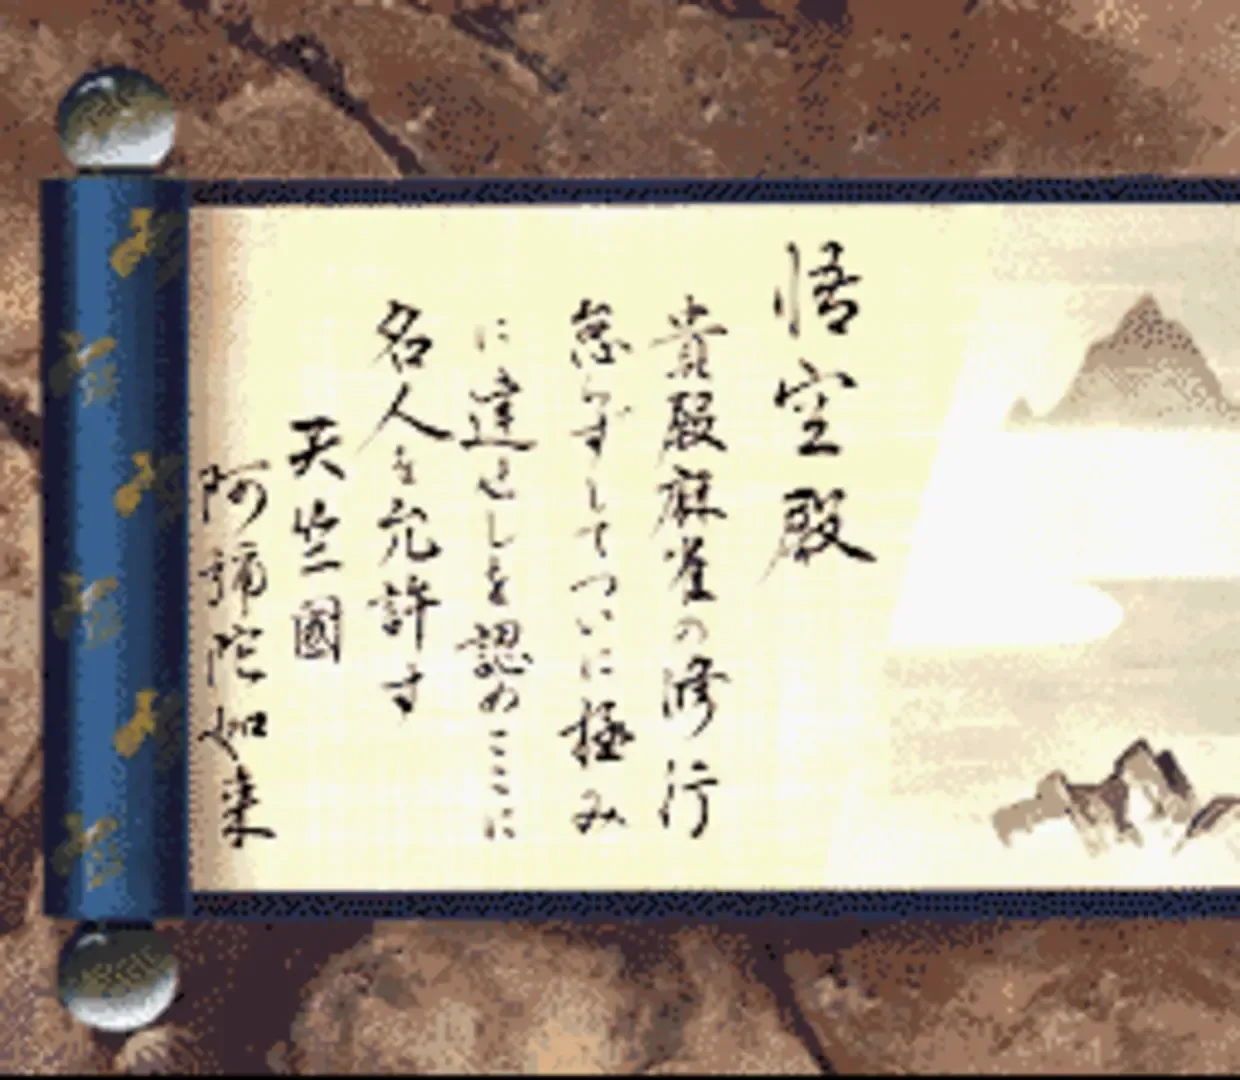 悟空殿
貴殿麻雀の修行
怠らずしてついに極み
に達せしを認めここに
名人を允許す
天竺國
阿弥陀如来